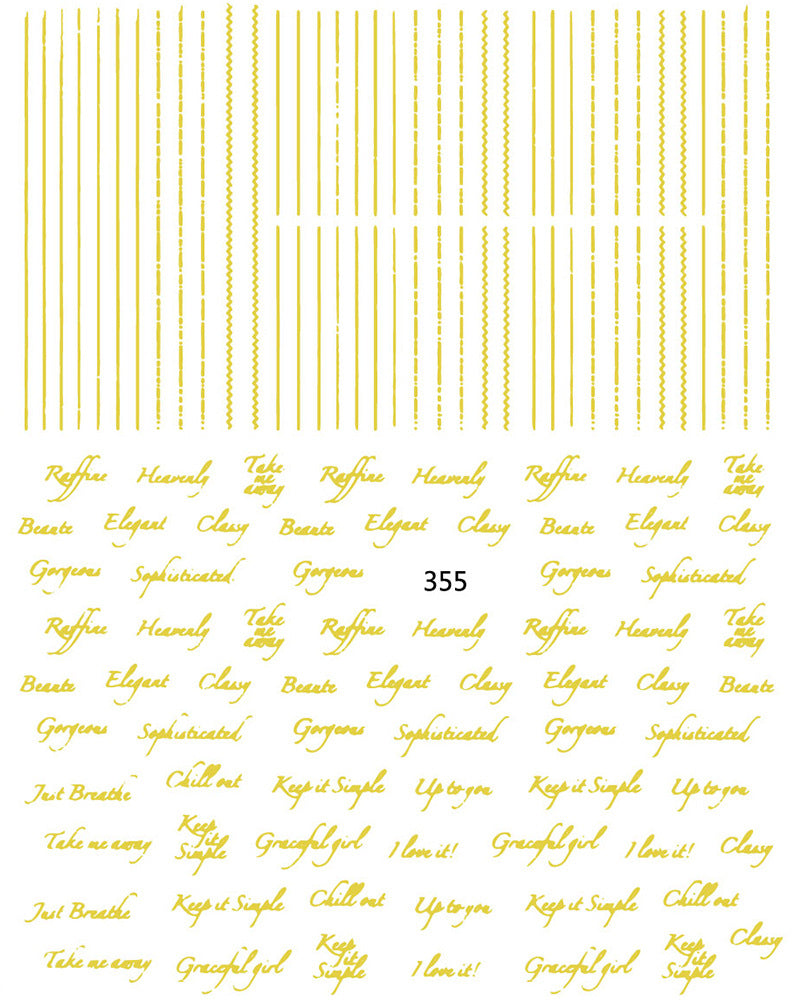 Raffine Heavenly Take me away Raffine Heavenly Raffine Heavenly Take me away
Beaute Elegant Classy Beaute Elegant Classy Beaute Elegant Classy
Gorgeous Sophisticated. Gorgeous 355 Gorgeous Sophisticated
Raffine Heavenly Take me away Raffine Heavenly Raffine Heavenly Take me away
Beaute Elegant Classy Beaute Elegant Classy Elegant Classy Beaute
Gorgeous Sophisticated Gorgeous Sophisticated Gorgeous Sophisticated
Just Breathe Chill out Keep it Simple Up to you Keep it Simple Up to you
Take me away Keep it Simple Graceful girl I love it! Graceful girl I love it! Classy
Just Breathe Keep it Simple Chill out Up to you Keep it Simple Chill out
Take me away Graceful girl Keep it Simple I love it! Graceful girl Keep it Simple Classy